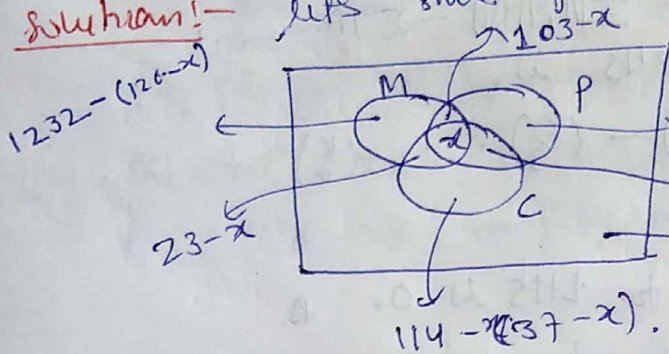 Solution:-
103-x
M P
1232-(126-x)
x
C
23-x
114-x(37-x).